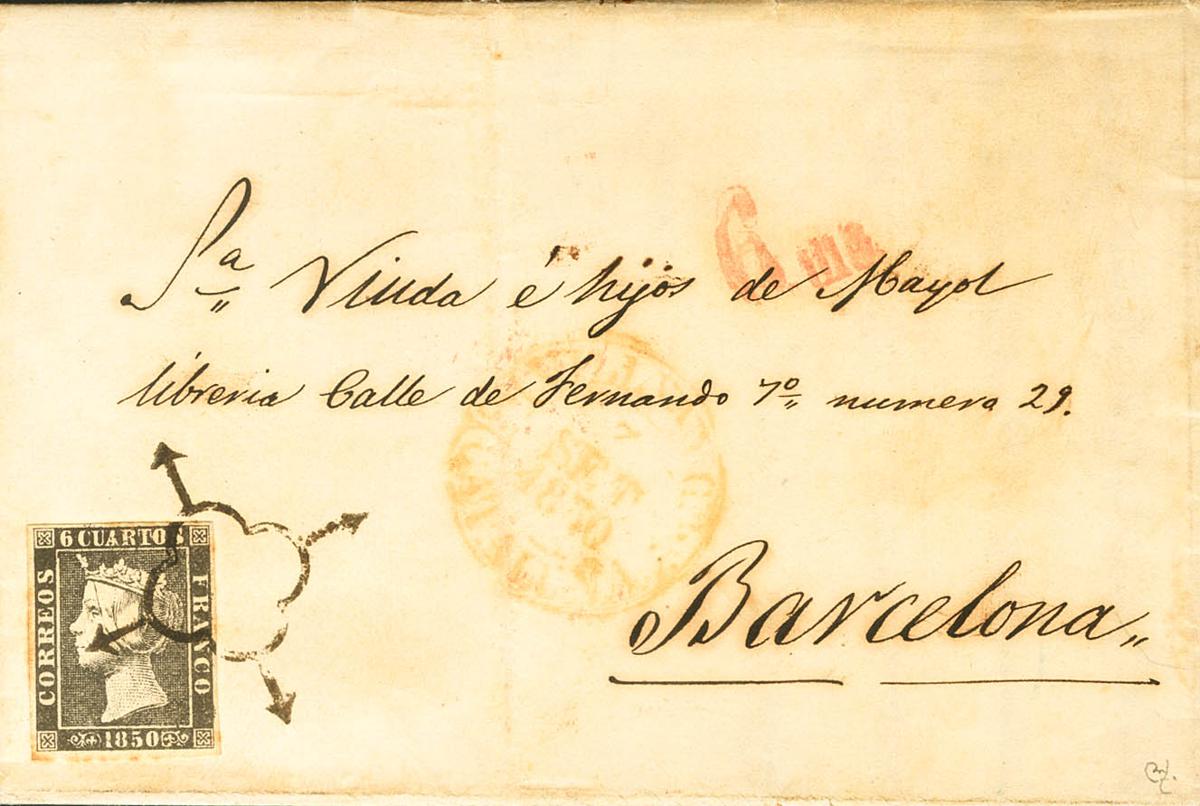 6
Sª Viuda é hijos de Mayol
libreria Calle de Fernando 7º numero 29.
SET
1850
Barcelona
6 CUARTOS
CORREOS
FRANCO
1850